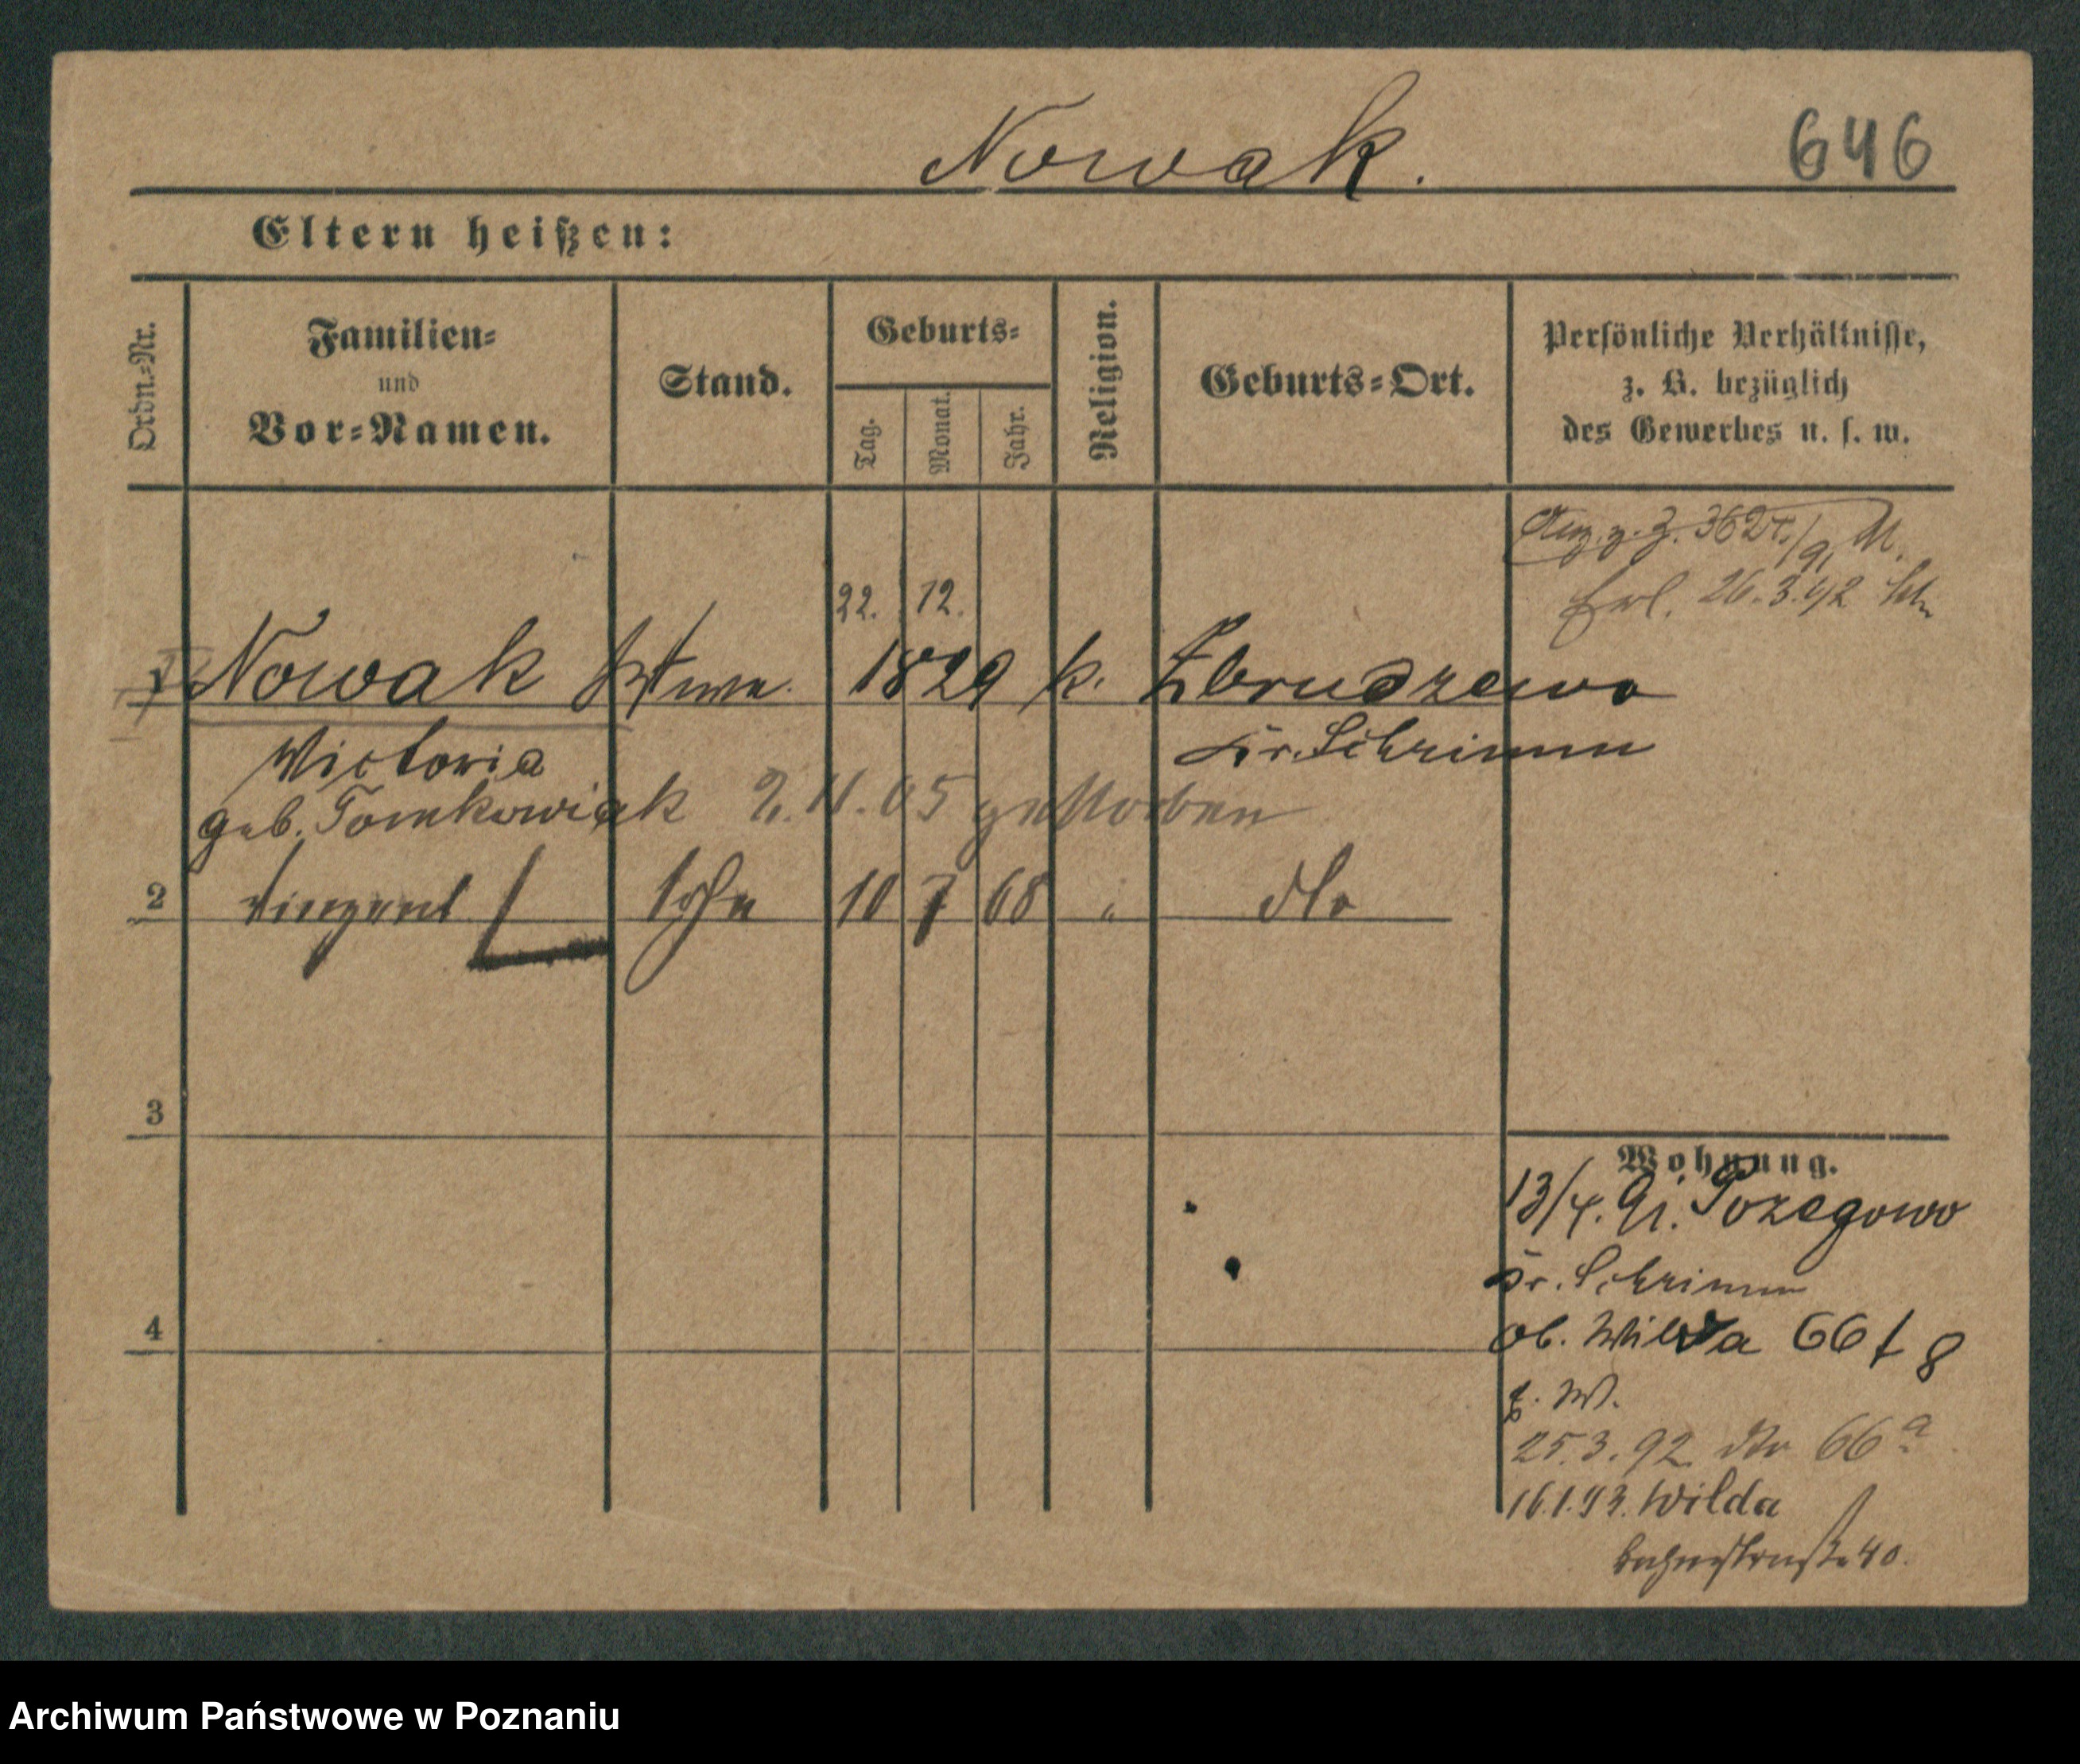 Nowak.
646
Eltern heißen:
Ordn.-Nr.
Familien-
und
Vor-Namen.
Stand.
Geburts-
Tag.
Monat.
Jahr.
Religion.
Geburts-Ort.
Persönliche Verhältnisse,
z. B. bezüglich
des Gewerbes u. s. w.
Erl. 26.3.92
22. 12.
1 Nowak 1829 k. Zbrudzewo
Victoria Kr. Schrimm
geb. Tomkowiak 2.11.05 gestorben
2 Vinzent Sohn 10 7 68 " dto
3
Wohnung.
13/4. 91. Pozegowo
Kr. Schrimm
4
Ob. Wilda 66 f 8
z. W.
25.3.92 dto 66a
16.1.93. Wilda
Bahnstraße 40.
Archiwum Państwowe w Poznaniu